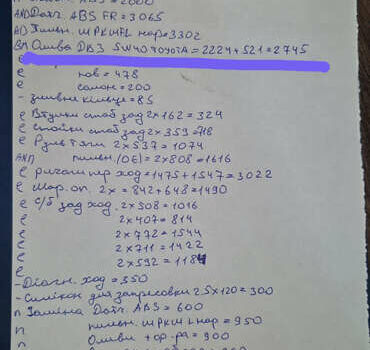 Датч. ABS FR = 3065
Пильн. ШРКШ FL нар = 3302
Олива ДВЗ 5W40 тоуота = 2224 + 521 = 2745
нов = 478
салон = 200
- зливне кільце = 85
е Втулки стаб зад 2x162 = 324
е Стойки стаб зад 2x359 = 718
е Рулв тяги 2x537 = 1074
пильн. (OE) = 2x808 = 1616
е ричаги пер ход = 1475 + 1547 = 3022
е Шар. оп. 2x = 842 + 648 = 1490
е С/б зад ход. 2x508 = 1016
е 2x407 = 814
е 2x772 = 1544
е 2x711 = 1422
е 2x592 = 1184
- Діагн. ход = 350
- Силікон для запресовки 2.5x120 = 300
п Заміна Датч. ABS = 600
п пильн. ШРКШ L нар = 950
п Оливи + ор-ра = 900